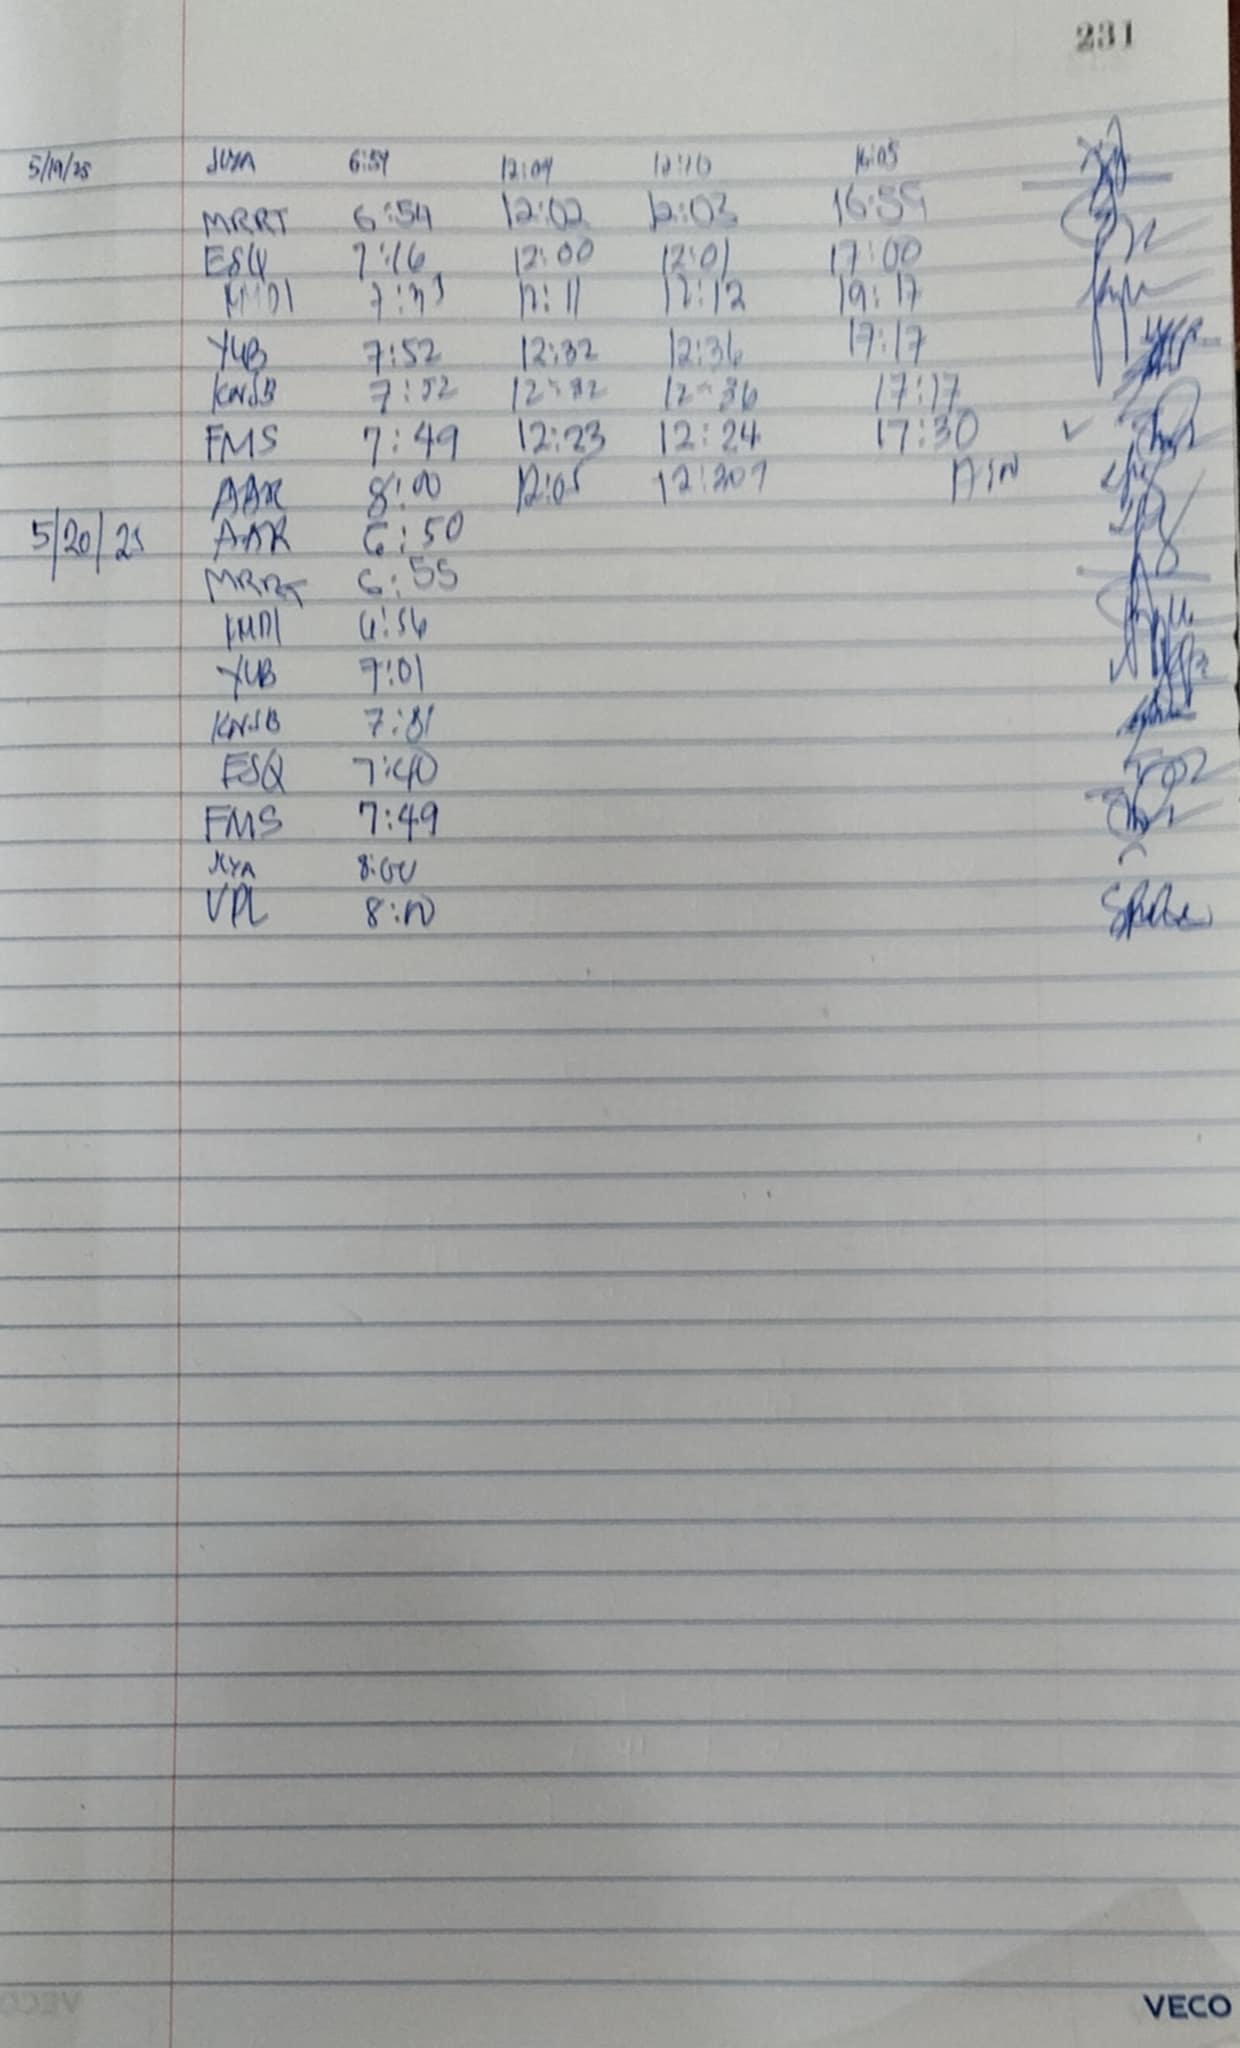 231
5/19/25 JUYA 6:54 12:09 12:10 16:05
MRRT 6:54 12:02 12:03 16:55
ESQ 7:16 12:00 12:01 17:00
7:33 12:11 12:12 19:17
YUB 7:52 12:32 12:36 17:17
KNSB 7:52 12:32 12:36 17:17
FMS 7:49 12:23 12:24 17:30
AAR 8:00 12:05
5/20/25 AAR 6:50
MRRT 6:55
6:56
YUB 7:01
KNSB
ESQ 7:40
FMS 7:49
8:00
VPL 8:10
VECO